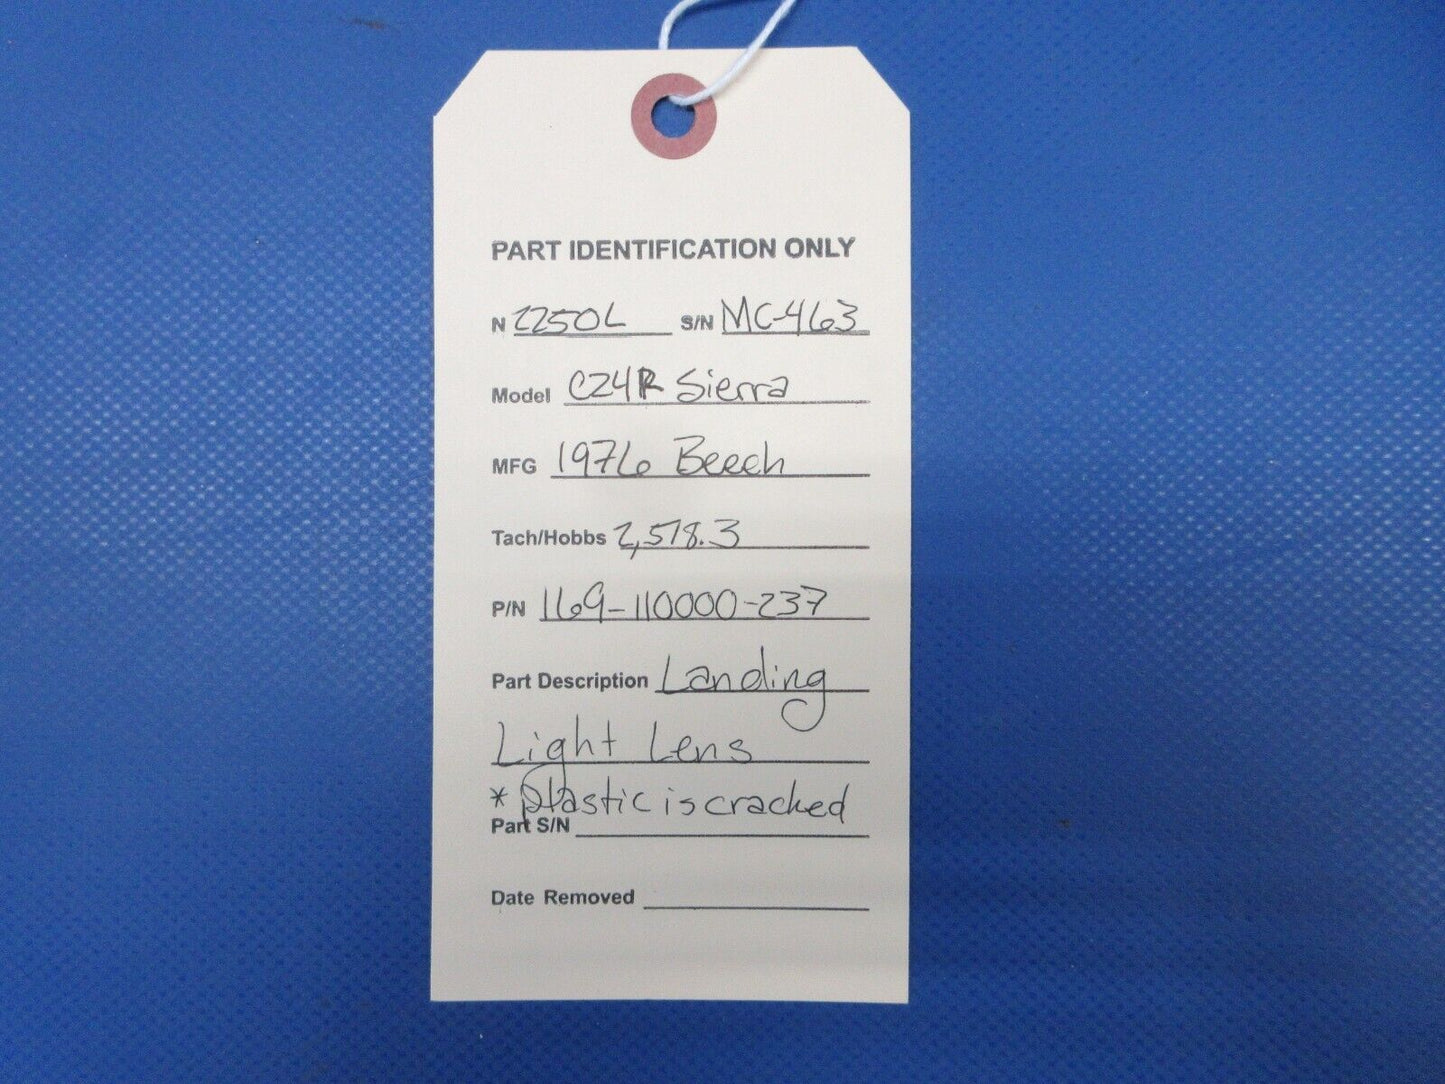 PART IDENTIFICATION ONLY
N 2250L S/N MC-463
Model C24R Sierra
MFG 1976 Beech
Tach/Hobbs 2,578.3
P/N 169-110000-237
Part Description Landing
Light Lens
* plastic is cracked
Part S/N
Date Removed